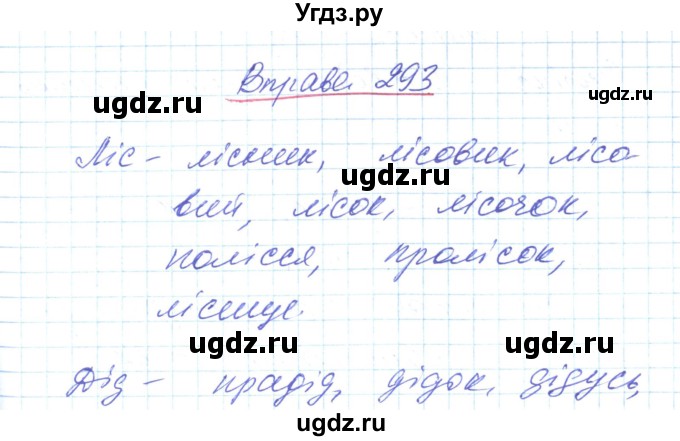 Угдз.ру
Вправа 293
ugdz.ru ugdz.ru
Ліс - лісник, лісовик, лісо-
ugdz.ru
вий, лісок, лісочок,
ugdz.ru
полісся, пролісок,
лісище.
ugdz.ru ugdz.ru
Дід - прадід, дідок, дідусь,
Угдз.ру